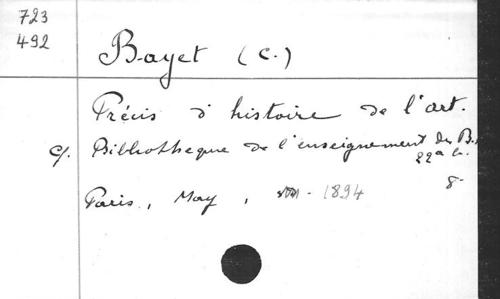 723
492
Bayet (C.)
Précis d'histoire de l'art.
c/. Bibliothèque de l'enseignement des B.
8-
Paris, May, - 1894